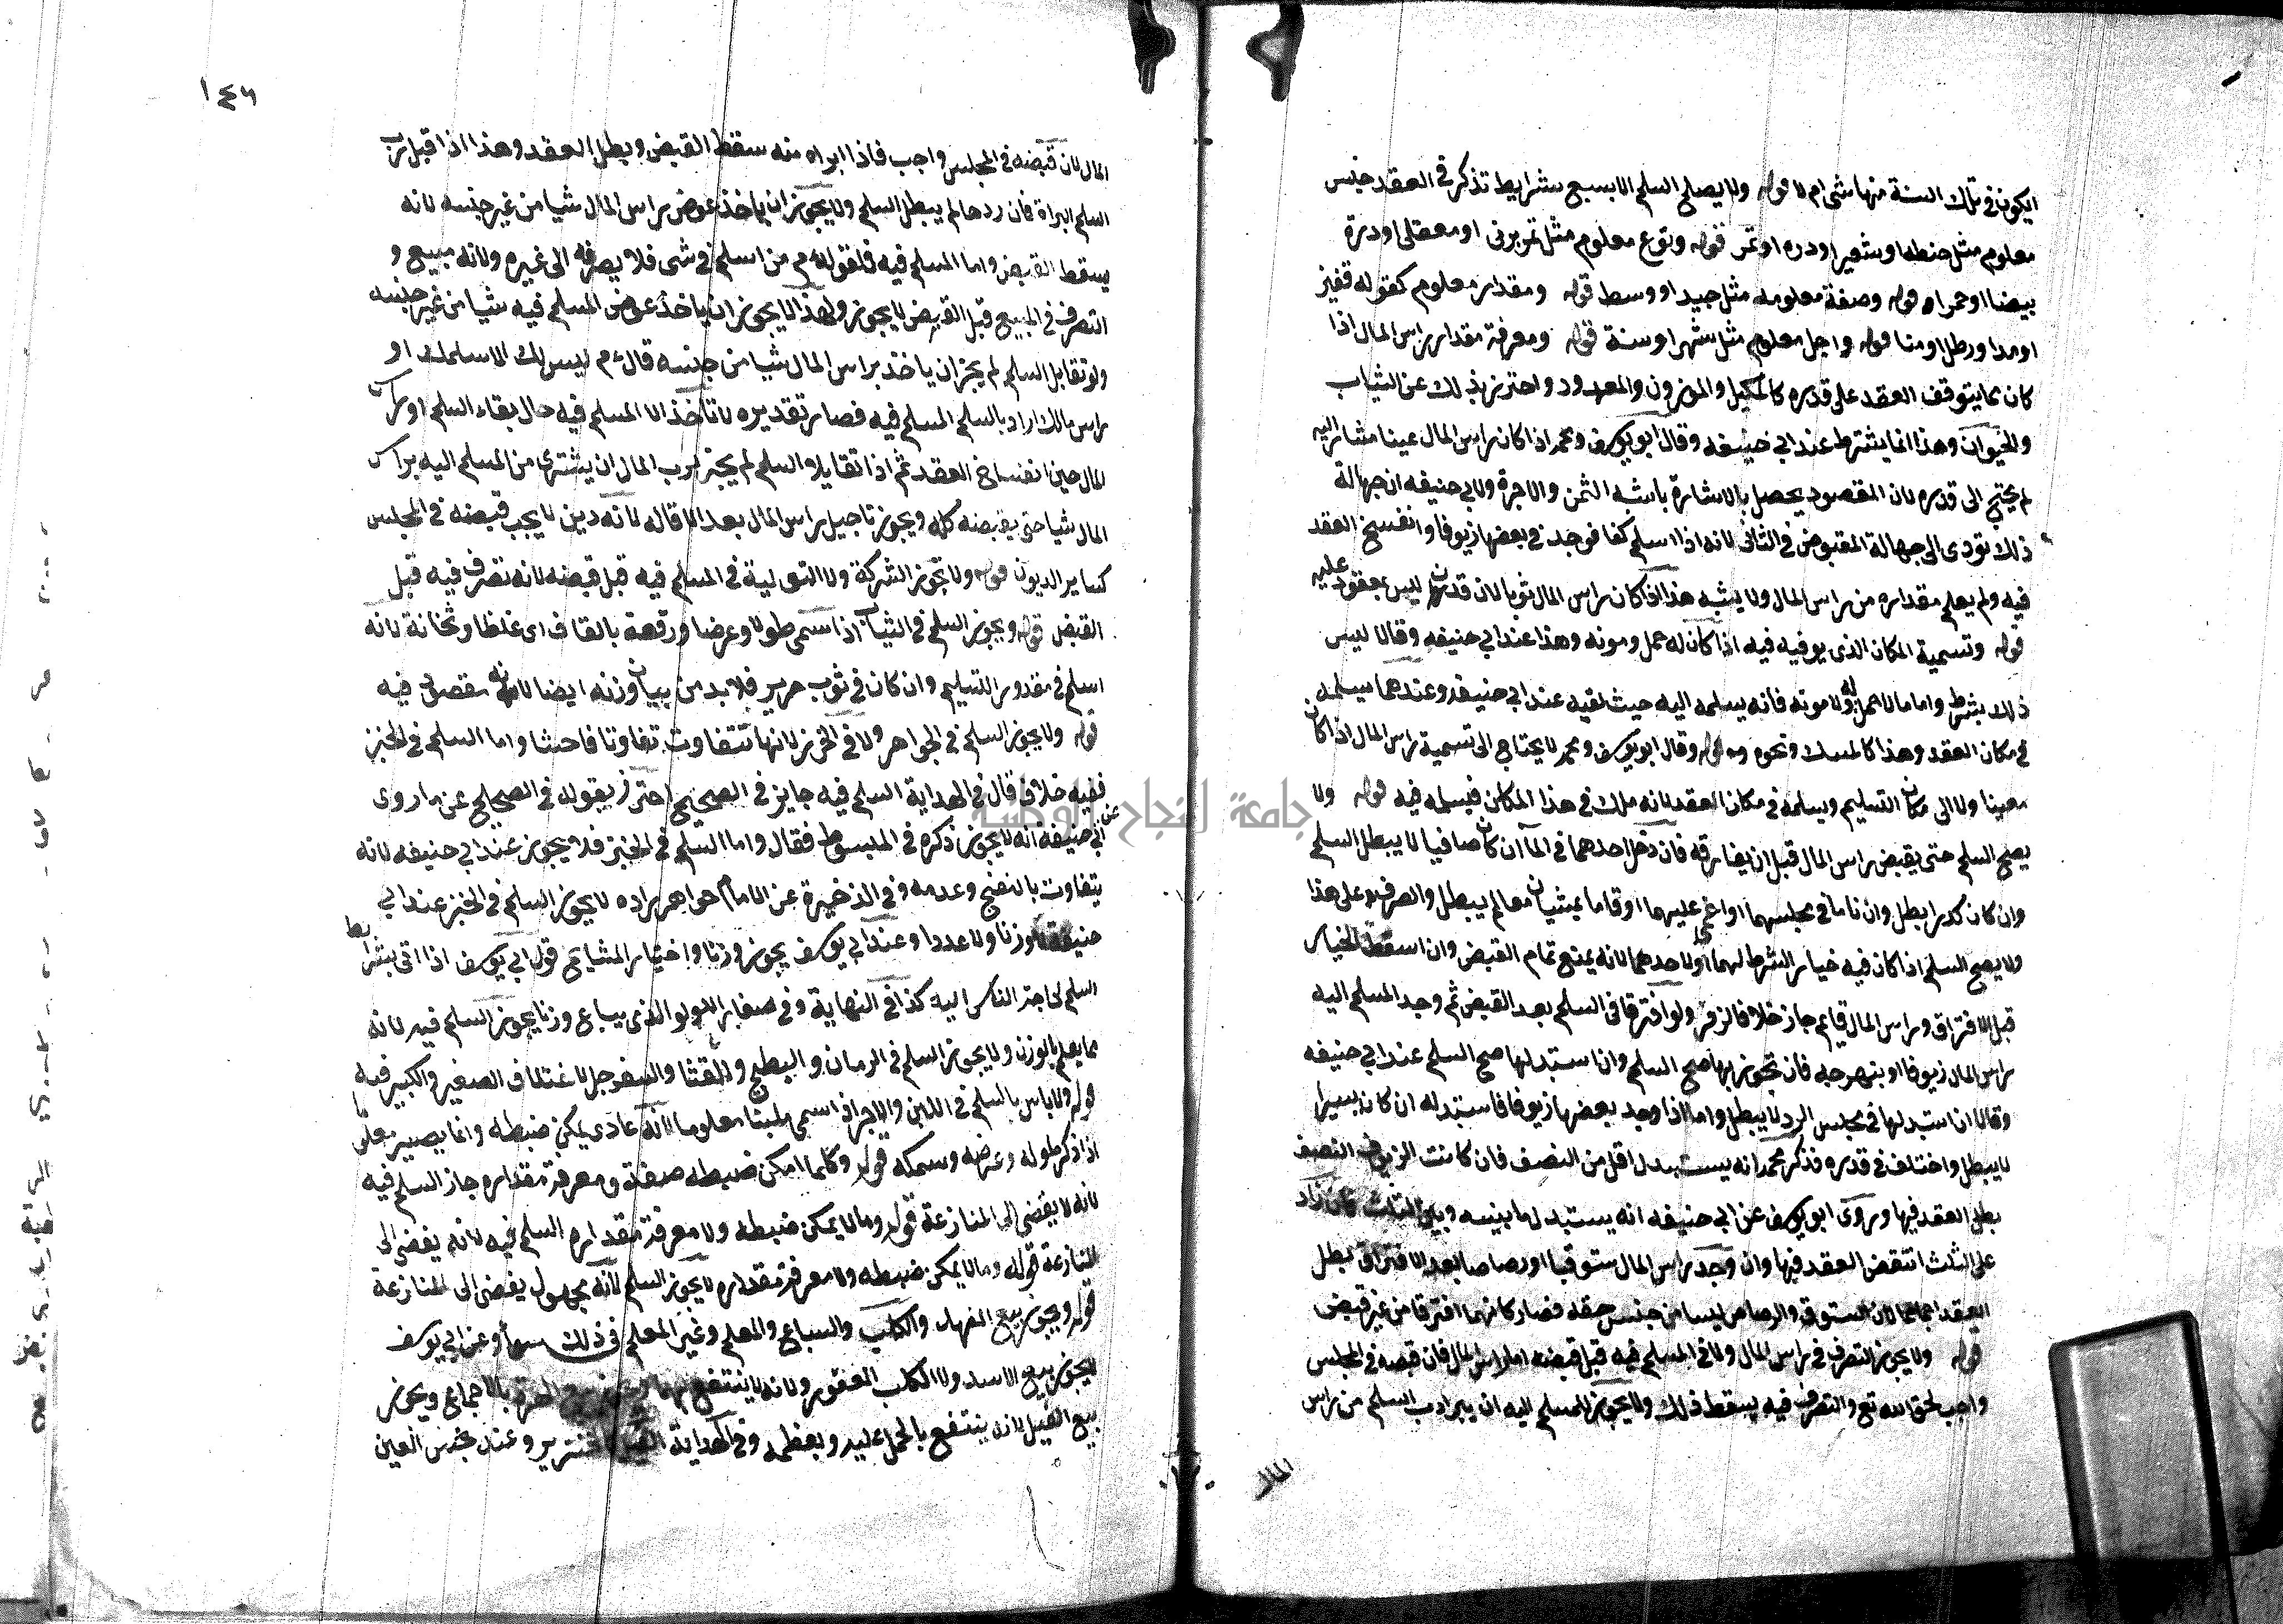 ايكون في تلك السنة منها شي ام لا قوله ولا يصلح السلم الا بسبع شرايط تذكر في العقد جنس
معلوم مثل حنطه او شعير او دره او تمر قوله ونوع معلوم مثل تمر برني او معقلي او درة
بيضا او حمراء قوله وصفة معلومه مثل جيد او وسط قوله ومقدار معلوم كقوله قفيز
او مدا او رطل او منا قوله واجل معلوم مثل شهر او سنة قوله ومعرفة مقدار راس المال اذا
كان مما يتوقف العقد على قدره كالمكيل والموزون والمعدود واحترز بذلك عن الثياب
والحيوان وهذا انما يشترط عند ابي حنيفه وقال ابو يوسف ومحمد اذا كان راس المال عينا مشار اليه
لم يحتج الى قدره لان المقصود يحصل بالاشارة باشبه الثمن والاجرة ولابي حنيفه ان جهالة
ذلك تودي الى جهالة المقبوض في الثاني لانه اذا اسلم كفا فوجد في بعضها زيوفا وانفسخ العقد
فيه ولم يعلم مقداره من راس المال ولا يشبه هذا اذا كان راس المال ثوبا لان قدره ليس بمعقود عليه
قوله وتسمية المكان الذي يوفيه فيه اذا كان له حمل ومونه وهذا عند ابي حنيفه وقالا ليس
ذلك بشرط واما ما لا حمل له ولا مونه فانه يسلمه اليه حيث لقيه عند ابي حنيفه وعندهما يسلمه
في مكان العقد وهذا كالمسك ونحوه قوله وقال ابو يوسف ومحمد لا يحتاج الى تسمية راس المال اذا كان
معينا ولا الى مكان التسليم ويسلمه في مكان العقد لانه ملك في هذا المكان فيسلمه فيه قوله ولا
يصح السلم حتى يقبض راس المال قبل ان يفارقه فان دخل احدهما في الماء ان كان صافيا لا يبطل السلم
وان كان كدرا بطل وان ناما في مجلسهما او اغمي عليهما او قاما يمشيان معا لم يبطل والصرف على هذا
ولا يصح السلم اذا كان فيه خيار الشرط لهما او لاحدهما لانه يمنع تمام القبض وان اسقط الخيار
قبل الافتراق وراس المال قايم جاز خلافا لزفر ولو افترقا في السلم بعد القبض ثم وجد المسلم اليه
راس المال زيوفا او بنهرجه فان تجوز بها صح السلم وان استبدلها صح السلم عند ابي حنيفه
وقالا ان استبدلها في مجلس الرد لا يبطل واما اذا وجد بعضها زيوفا فاستبدله ان كان يسيرا
لا يبطل واختلف في قدره فذكر محمد انه يستبدل اقل من النصف فان كانت الزيوف النصف
بطل العقد فيها وروى ابو يوسف عن ابي حنيفه انه يستبدل ما بينه وبين الثلث فان زاد
على الثلث انتقض العقد فيها وان وجد راس المال ستوقا او رصاصا بعد الافتراق بطل
العقد اجماعا لان الستوق والرصاص ليسا من جنس حقه فصار كانهما افترقا من غير قبض
قوله ولا يجوز التصرف في راس المال ولا في المسلم فيه قبل قبضه اما راس المال فان قبضه في المجلس
واجب لحق الله تع والتصرف فيه يسقط ذلك ولا يجوز للمسلم اليه ان يبرا رب السلم من راس
المال
١٤٦
المال لان قبضه في المجلس واجب فاذا ابراه منه سقط القبض وبطل العقد وهذا اذا قبل رب
السلم البراة فان ردها لم يبطل السلم ولا يجوز ان ياخذ عوض راس المال شيا من غير جنسه لانه
يسقط القبض واما المسلم فيه فلقوله ءم من اسلم في شي فلا يصرفه الى غيره ولانه مبيع و
التصرف في المبيع قبل القبض لا يجوز ولهذا لا يجوز ان ياخذ عوض المسلم فيه شيا من غير جنسه
ولو تقايل السلم لم يجز ان ياخذ براس المال شيا من جنسه قال ءم ليس لك الا سلمك او
راس مالك اراد بالسلم المسلم فيه فصار تقديره لا تاخذ الا المسلم فيه حال بقاء السلم او راس
المال حين انفساخ العقد ثم اذا تقايلا السلم لم يجز لرب المال ان يشتري من المسلم اليه براس
المال شيا حتى يقبضه كله ويجوز تاجيل راس المال بعد الاقاله لانه دين لا يجب قبضه في المجلس
كساير الديون قوله ولا تجوز الشركة ولا التولية في المسلم فيه قبل قبضه لانه تصرف فيه قبل
القبض قوله ويجوز السلم في الثياب اذا سمى طولا وعرضا ورقعة بالقاف اي غلظا وثخانة لانه
اسلم في مقدور التسليم وان كان في ثوب حرير فلا بد من بيان وزنه ايضا لانه مقصود فيه
قوله ولا يجوز السلم في الجواهر ولا في الخرز لانها تتفاوت تفاوتا فاحشا واما السلم في الخبز
ففيه خلاف قال في الهداية السلم فيه جايز في الصحيح احترز بقوله في الصحيح عن ما روى
عن ابي حنيفة انه لا يجوز ذكره في المبسوط فقال واما السلم في الخبز فلا يجوز عند ابي حنيفه لانه
يتفاوت بالنضج وعدمه وفي الذخيرة عن الامام خواهر زاده لا يجوز السلم في الخبز عند ابي
حنيفة لا وزنا ولا عددا وعند ابي يوسف يجوز وزنا واختيار المشايخ قول ابي يوسف اذا اتى بشرايط
السلم لحاجة الناس اليه كذا في النهاية وفي صغار اللولو الذي يباع وزنا يجوز السلم فيه لانه
مما يعلم بالوزن ولا يجوز السلم في الرمان والبطيخ والقثا والسفرجل لاختلاف الصغير والكبير فيه
قوله ولا باس بالسلم في اللبن والاجر اذا سمى ملبنا معلوما لانه عادي يمكن ضبطه وانما يصير معلوما
اذا ذكر طوله وعرضه وسمكه قوله وكلما امكن ضبطه صفة ومعرفة مقداره جاز السلم فيه
لانه لا يفضي الى المنازعة قوله وما لا يمكن ضبطه ولا معرفة مقداره السلم فيه لانه يفضي الى
المنازعة قوله وما لا يمكن ضبطه ولا معرفة مقداره لا يجوز السلم لانه مجهول يفضي الى المنازعة
قوله ويجوز بيع الفهد والكلب والسباع والمعلم وغير المعلم في ذلك سواء وعن ابي يوسف
لا يجوز بيع الاسد ولا الكلب العقور ولانه لا ينتفع بهما بالاجماع ويجوز
بيع الفيل لانه ينتفع بالحمل عليه وبعظمه وفي الهداية الفيل كالخنزير وعند نجس العين
جامعة النجاح الوطنية